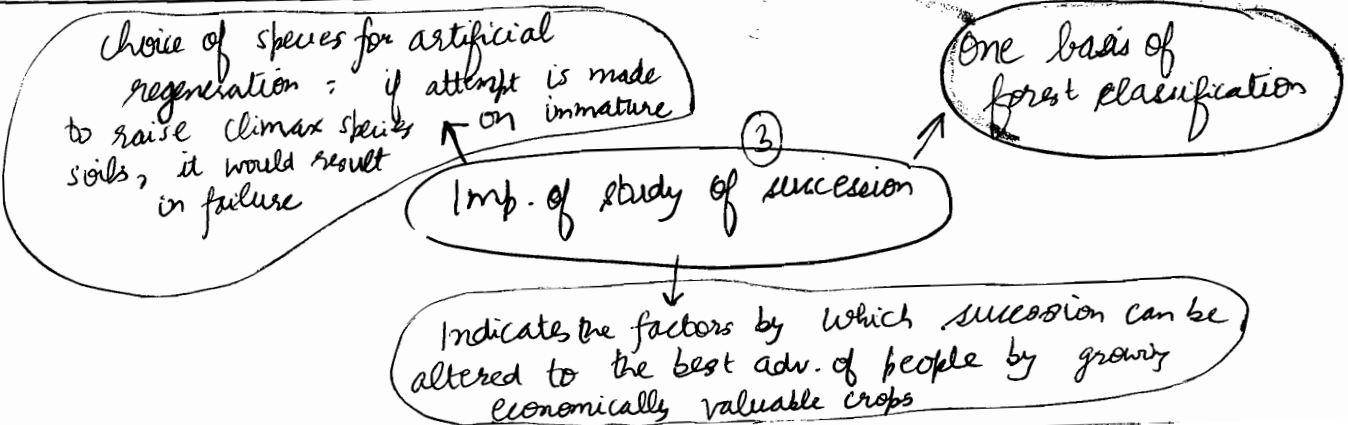 Choice of species for artificial
regeneration : if attempt is made
to raise climax species on immature
soils, it would result
in failure
One basis of
forest classification
3
Imp. of study of succession
Indicates the factors by which succession can be
altered to the best adv. of people by growing
economically valuable crops